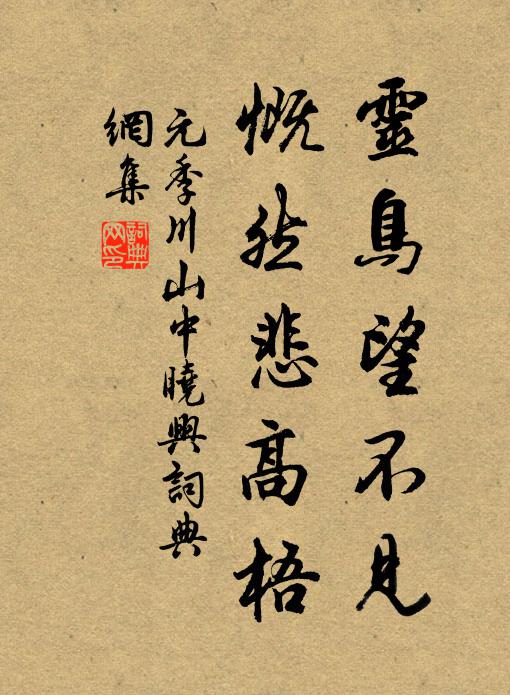 靈鳥望不見
慨然悲高梧
元季川山中曉興詞典
網集
詞典
网印